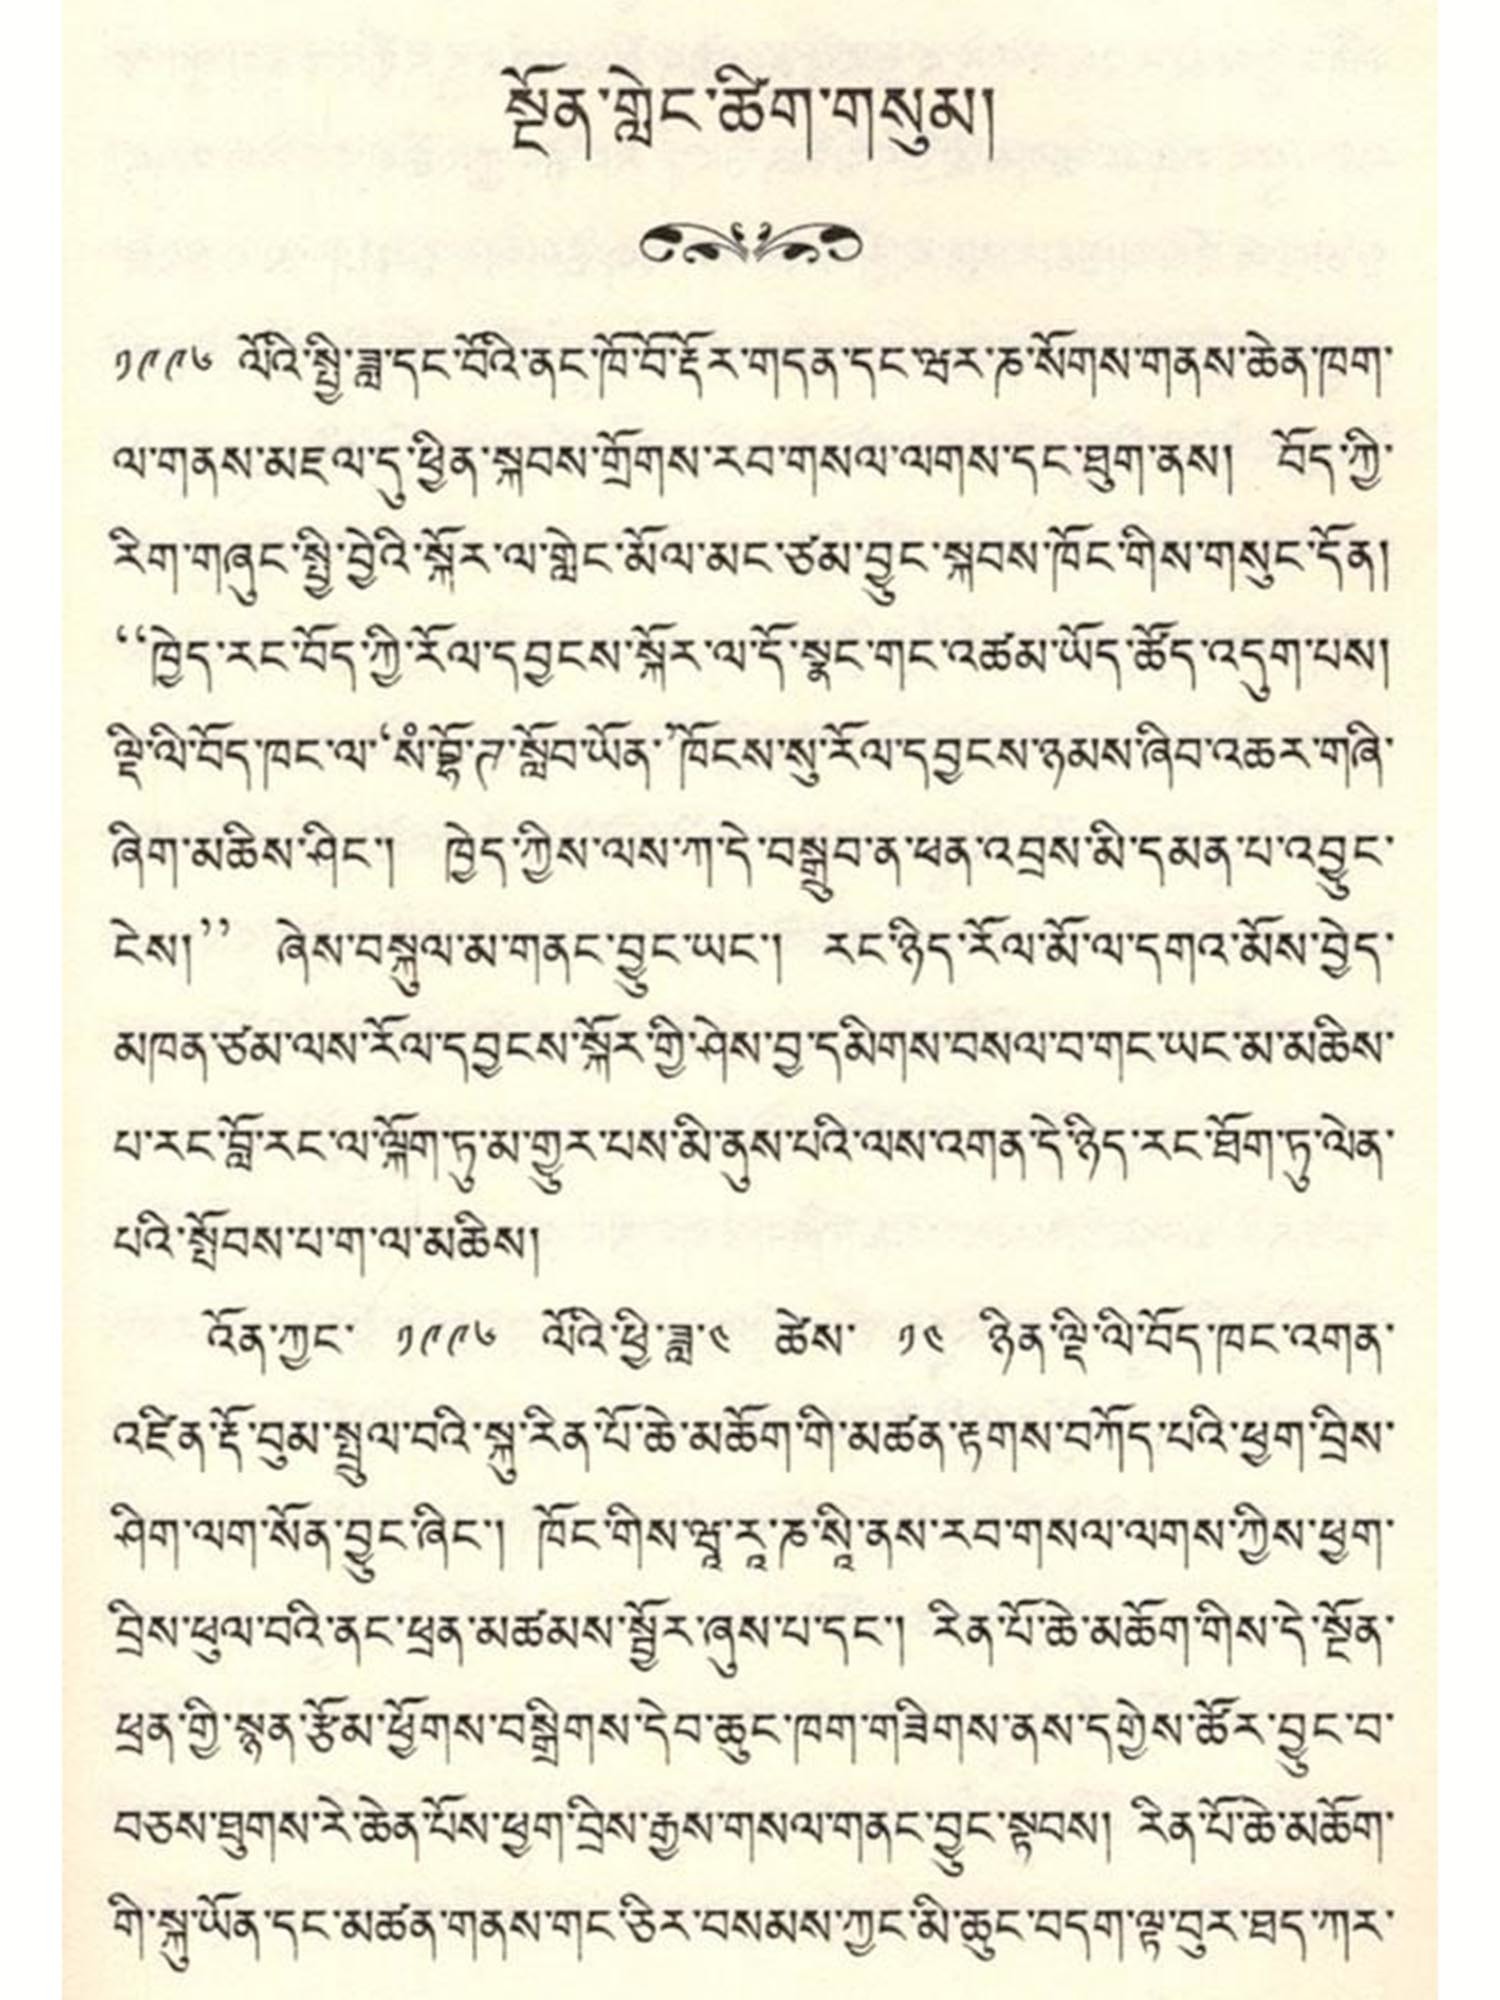 སྔོན་གླེང་ཚིག་གསུམ།
༡༩༩༦ ལོའི་སྤྱི་ཟླ་དང་པོའི་ནང་ཁོ་བོ་རྡོར་གདན་དང་ཝར་ཎ་སོགས་གནས་ཆེན་ཁག་
ལ་གནས་མཇལ་དུ་ཕྱིན་སྐབས་གྲོགས་རབ་གསལ་ལགས་དང་ཐུག་ནས། བོད་ཀྱི་
རིག་གཞུང་སྤྱི་བྱེའི་སྐོར་ལ་གླེང་མོལ་མང་ཙམ་བྱུང་སྐབས་ཁོང་གིས་གསུང་དོན།
“ཁྱེད་རང་བོད་ཀྱི་རོལ་དབྱངས་སྐོར་ལ་དོ་སྣང་གང་འཚམ་ཡོད་ཚོད་འདུག་པས།
ལྡི་ལི་བོད་ཁང་ལ་‘སཾ་བྷོ་ཊ་སློབ་ཡོན་’ཁོངས་སུ་རོལ་དབྱངས་ཉམས་ཞིབ་འཆར་གཞི་
ཞིག་མཆིས་ཤིང་། ཁྱེད་ཀྱིས་ལས་ཀ་དེ་བསྒྲུབ་ན་ཕན་འབྲས་མི་དམན་པ་འབྱུང་
ངེས།” ཞེས་བསྐུལ་མ་གནང་བྱུང་ཡང་། རང་ཉིད་རོལ་མོ་ལ་དགའ་མོས་བྱེད་
མཁན་ཙམ་ལས་རོལ་དབྱངས་སྐོར་གྱི་ཤེས་བྱ་དམིགས་བསལ་བ་གང་ཡང་མ་མཆིས་
པ་རང་བློ་རང་ལ་ལྐོག་ཏུ་མ་གྱུར་པས་མི་ནུས་པའི་ལས་འགན་དེ་ཉིད་རང་ཐོག་ཏུ་ལེན་
པའི་སྤོབས་པ་ག་ལ་མཆིས།
འོན་ཀྱང་ ༡༩༩༦ ལོའི་ཕྱི་ཟླ་༤ ཚེས་ ༡༤ ཉིན་ལྡི་ལི་བོད་ཁང་འགན་
འཛིན་རྡོ་བུམ་སྤྲུལ་བའི་སྐུ་རིན་པོ་ཆེ་མཆོག་གི་མཚན་རྟགས་བཀོད་པའི་ཕྱག་བྲིས་
ཤིག་ལག་སོན་བྱུང་ཞིང་། ཁོང་གིས་ཝཱ་རཱ་ཎ་སཱི་ནས་རབ་གསལ་ལགས་ཀྱིས་ཕྱག་
བྲིས་ཕུལ་བའི་ནང་ཕྲན་མཚམས་སྦྱོར་ཞུས་པ་དང་། རིན་པོ་ཆེ་མཆོག་གིས་དེ་སྔོན་
ཕྲན་གྱི་སྙན་རྩོམ་ཕྱོགས་བསྒྲིགས་དེབ་ཆུང་ཁག་གཟིགས་ནས་དགྱེས་ཚོར་བྱུང་བ་
བཅས་ཐུགས་རེ་ཆེན་པོས་ཕྱག་བྲིས་རྒྱས་གསལ་གནང་བྱུང་སྟབས། རིན་པོ་ཆེ་མཆོག་
གི་སྐུ་ཡོན་དང་མཚན་གནས་གང་ཅིར་བསམས་ཀྱང་མི་ཆུང་བདག་ལྟ་བུར་ཐད་ཀར་